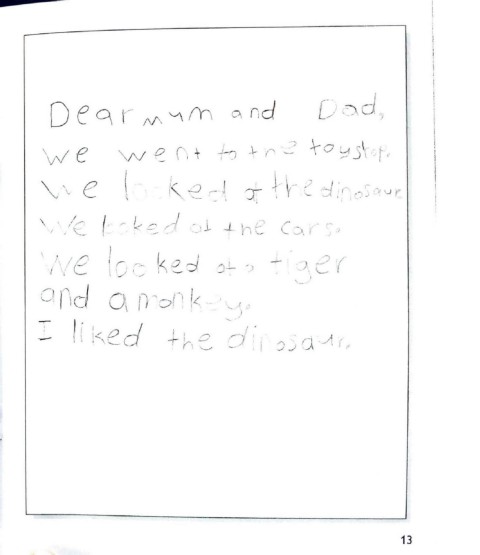 Dear mum and Dad,
we went to the toyshop.
We looked at the dinosaur
We looked at the cars.
We looked at a tiger
and a monkey.
I liked the dinosaur.
13